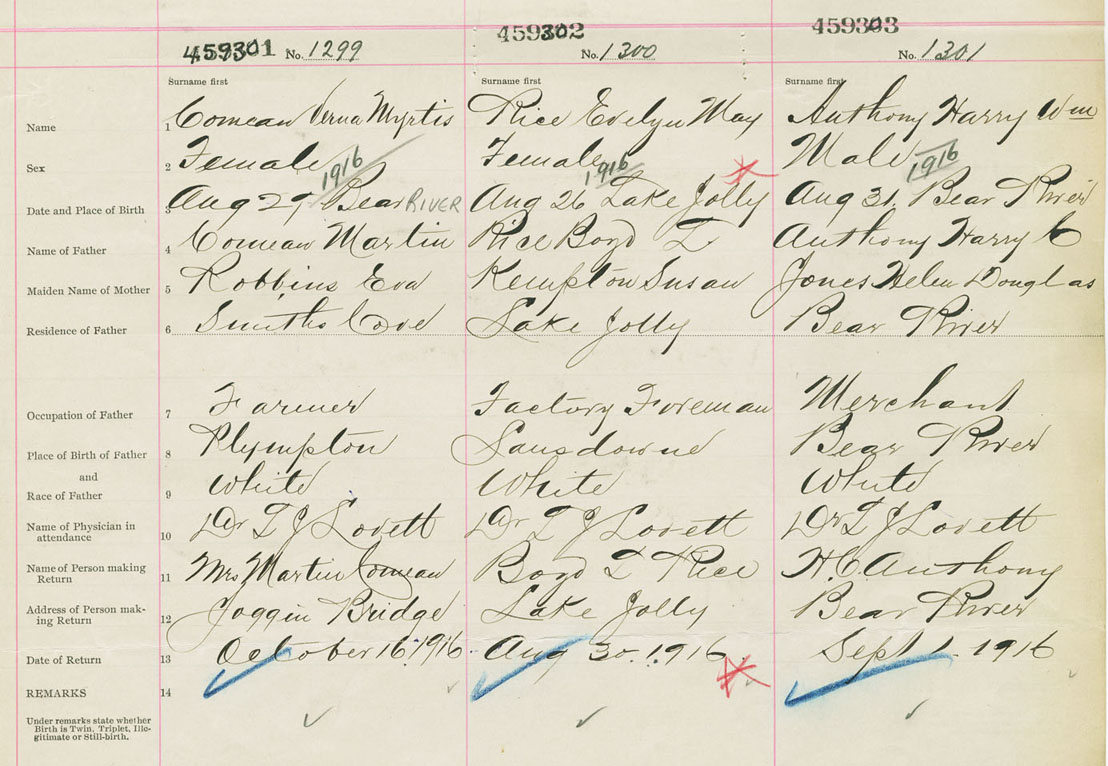 459301 No. 1299 459302 No. 1300 459303 No. 1301
Surname first Surname first Surname first
Name 1 Comeau Verna Myrtis Rice Evelyn May Anthony Harry Wm
Sex 2 Female Female Male
1916 1916 1916
Date and Place of Birth 3 Aug 29 Bear RIVER Aug 26 Lake Jolly Aug 31. Bear River
Name of Father 4 Comeau Martin Rice Boyd L Anthony Harry C
Maiden Name of Mother 5 Robbins Eva Kempton Susan Jones Helen Douglas
Residence of Father 6 Smiths Cove Lake Jolly Bear River
Occupation of Father 7 Farmer Factory Foreman Merchant
Place of Birth of Father 8 Plympton Lansdowne Bear River
and
Race of Father 9 White White White
Name of Physician in
attendance 10 Dr L J Lovett Dr L J Lovett Dr L J Lovett
Name of Person making
Return 11 Mrs Martin Comeau Boyd L Rice H. C Anthony
Address of Person mak-
ing Return 12 Joggin Bridge Lake Jolly Bear River
Date of Return 13 October 16. 1916 Aug 30. 1916 Sept 1. 1916
REMARKS 14
Under remarks state whether
Birth is Twin, Triplet, Ille-
gitimate or Still-birth.